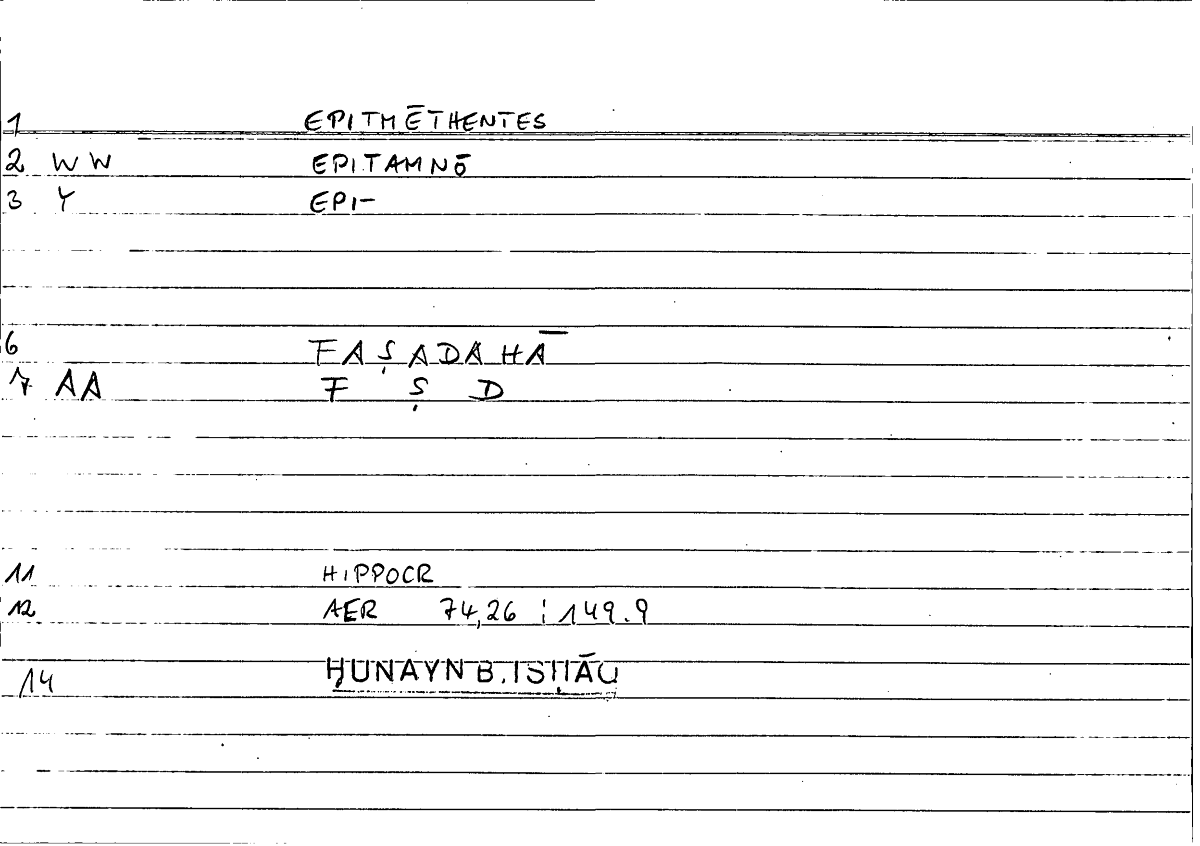 1 EPITMĒTHENTES
2 WW EPITAMNŌ
3 Y EPI-
6 FAṢADAHĀ
7 AA F Ṣ D
11 HIPPOCR
12 AER 74,26 ; 149.9
14 ḤUNAYN B. ISḤĀQ